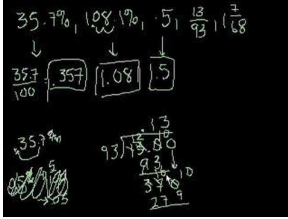 35.7%, 108.1%, .5, 13/93, 1 7/68
35.7/100 = .357 1.08 1.5
35.7%
.5
.05
13
93)13.00
93
370
279